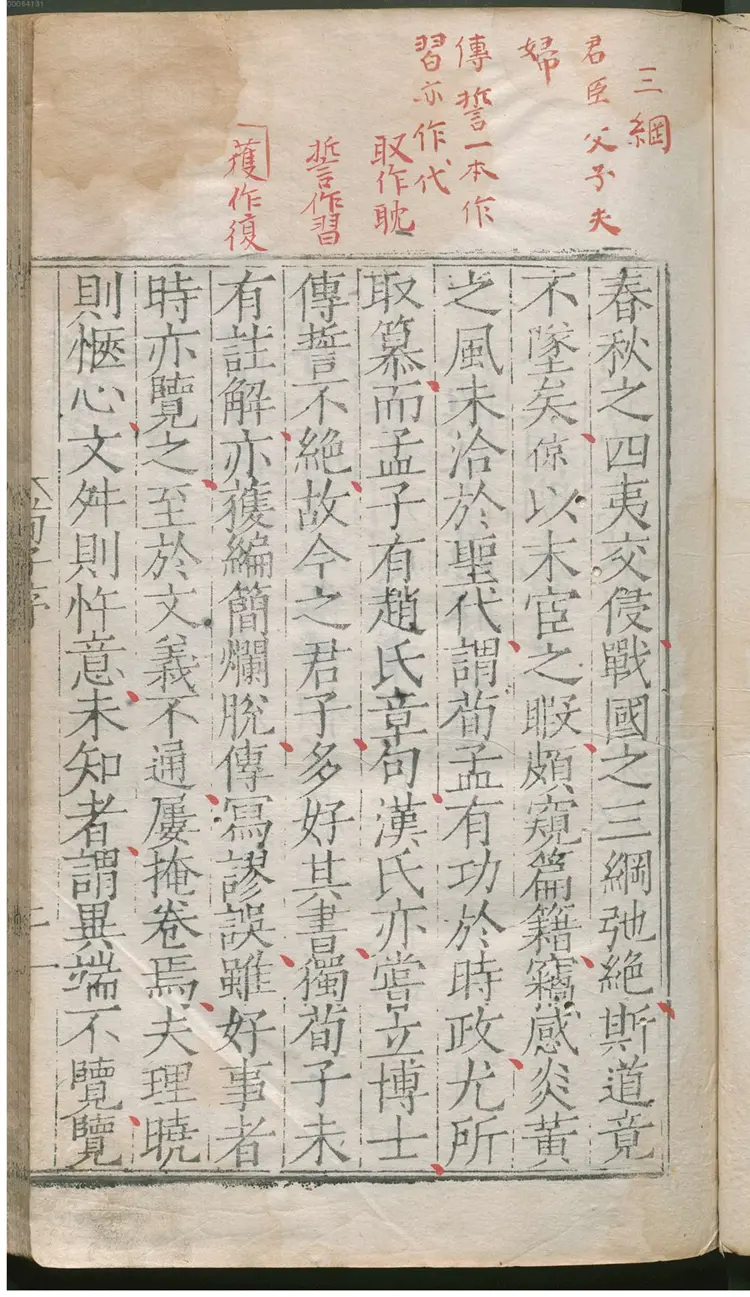 00064131
三綱
君臣父子夫
婦
傳誓一本作
習亦作代
取作耽
誓作習
獲作復
春秋之四夷交侵戰國之三綱弛絕斯道竟
不墜矣倞以末宦之暇頗窺篇籍竊感炎黃
之風未洽於聖代謂荀孟有功於時政尤所
取慕而孟子有趙氏章句漢氏亦嘗立博士
傳誓不絕故今之君子多好其書獨荀子未
有註解亦獲編簡爛脫傳寫謬誤雖好事者
時亦覽之至於文義不通屢掩卷焉夫理曉
則愜心文舛則忤意未知者謂異端不覽覽